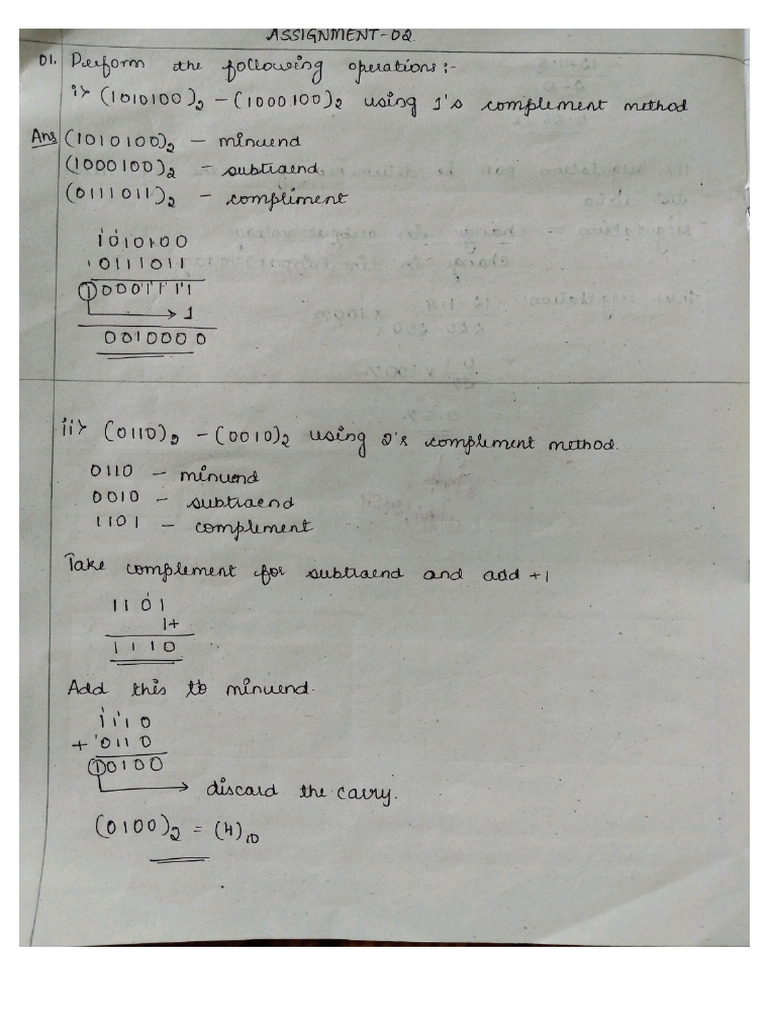 ASSIGNMENT-02
01. Perform the following operations:-
i> (1010100)₂ - (1000100)₂ using 1's complement method
Ans (1010100)₂ - minuend
(1000100)₂ - subtraend
(0111011)₂ - compliment
1010100
0111011
10001111
1
0010000
ii> (0110)₂ - (0010)₂ using 2's complement method.
0110 - minuend
0010 - subtraend
1101 - complement
Take complement for subtraend and add +1
1101
1+
1110
Add this to minuend.
1110
+ 0110
10100
discard the carry.
(0100)₂ = (4)₁₀